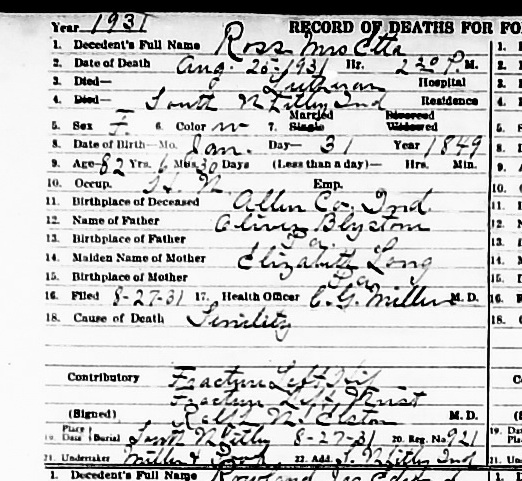 Year 1931 RECORD OF DEATHS FOR FO
1. Decedent's Full Name Ross Mrs Etta
2. Date of Death Aug. 25-1931 Hr. 2 30 P. M.
3. Died— Lutheran Hospital
4. Died— South Whitley Ind Residence
Married Divorced
5. Sex F. 6. Color W 7. Single Widowed
8. Date of Birth—Mo. Jan. Day— 31 Year 1849
9. Age— 82 Yrs. 6 Mos. 30 Days (Less than a day)— Hrs. Min.
10. Occup. H. W. Emp.
11. Birthplace of Deceased Allen Co. Ind
12. Name of Father Oliver Blystom
13. Birthplace of Father Pa.
14. Maiden Name of Mother Elizabeth Long
15. Birthplace of Mother Pa
16. Filed 8-27-31 17. Health Officer C. G. Miller M. D.
18. Cause of Death Senility
Contributory Fracture Left Hip
Fracture Left Wrist
(Signed) Ralph W. Elston M. D.
Place
19. Date Burial South Whitley 8-27-31 20. Reg. No 921
21. Undertaker Miller & 22. Add. S. Whitley Ind
1. Decedent's Full Name